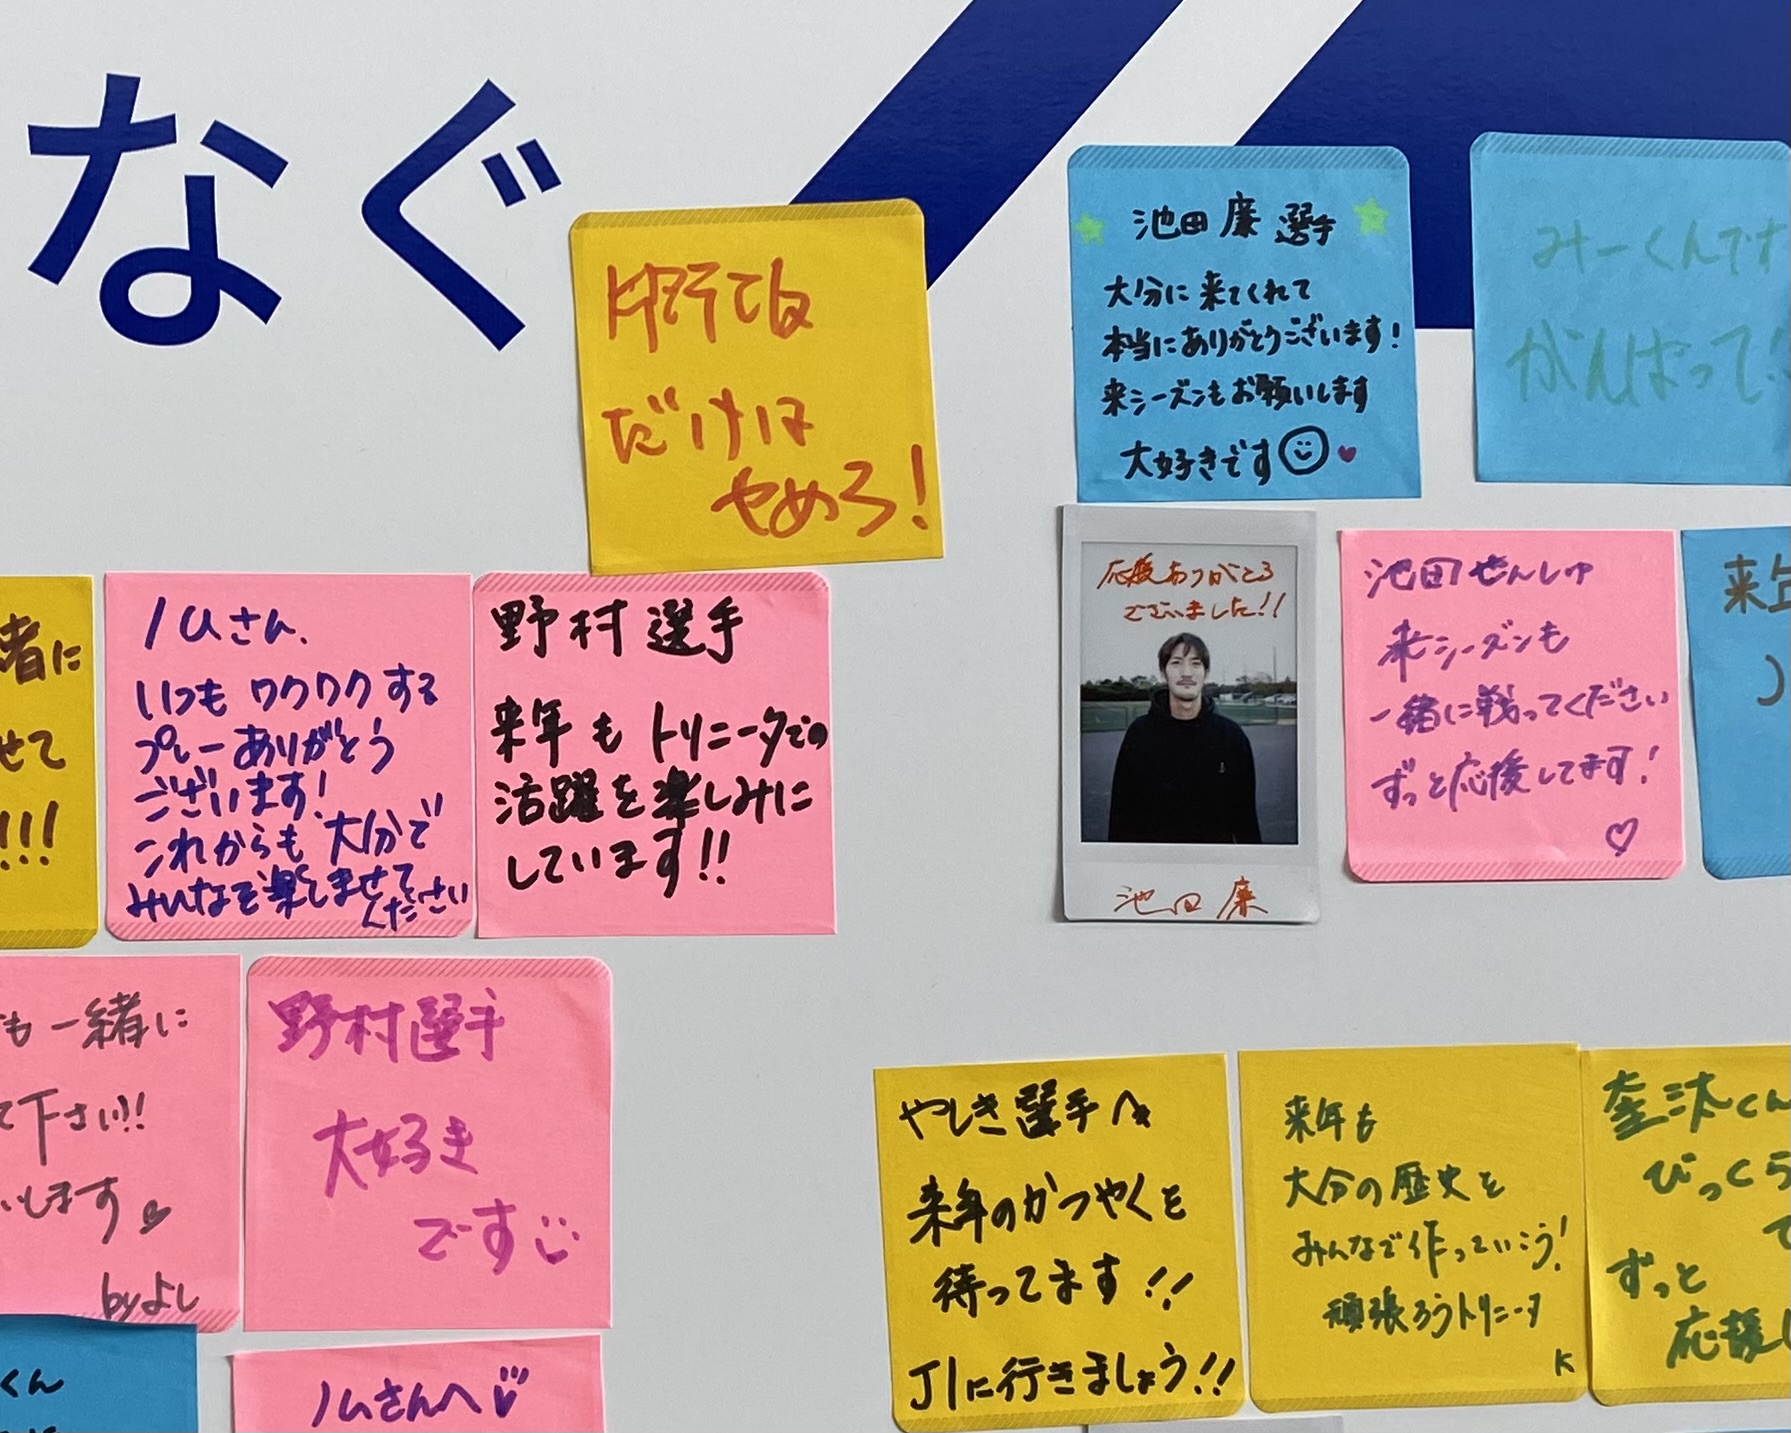 なぐ
だけは
やめろ!
池田廉選手
大分に来てくれて
本当にありがとうございます!
来シーズンもお願いします
大好きです
みーくんです
がんばって
応援ありがとう
ございました!!
池田 廉
池田せんしゅ
来シーズンも
一緒に戦ってください
ずっと応援してます!
緒に
せて
!!!
ノムさん、
いつもワクワクする
プレーありがとう
ございます!
これからも大分で
みんなを楽しませて
ください
野村選手
来年もトリニータでの
活躍を楽しみに
しています!!
も一緒に
て下さい!!
します
byよし
野村選手
大好き
です
くん
ノムさんへ
やしき選手へ
来年のかつやくを
待ってます!!
J1に行きましょう!!
来年も
大分の歴史を
みんなで作っていこう!
頑張ろうトリニータ
K
奎汰くん
びっくら
ずっと
応援し